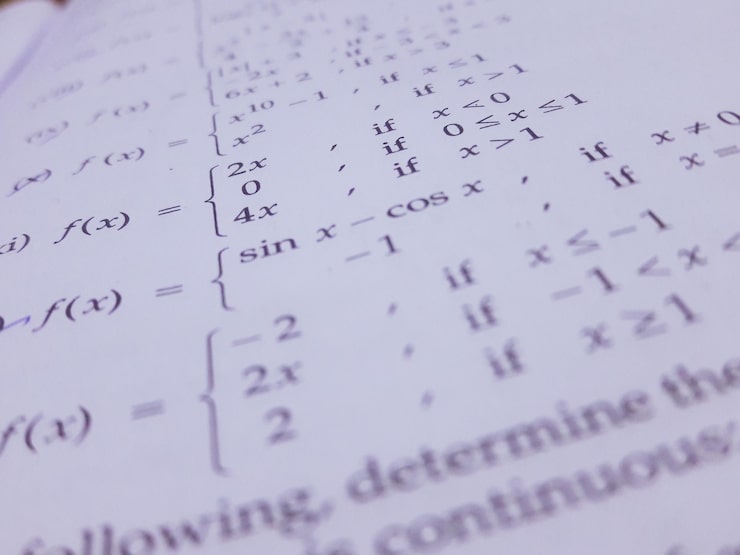 |x| + 3 , if x ≤ -3
-2x , if -3 < x < 3
6x + 2 , if x > 3
(x) f(x) = { x¹⁰ - 1 , if x ≤ 1
x² , if x > 1
f(x) = { 2x , if x < 0
0 , if 0 ≤ x ≤ 1
4x , if x > 1
f(x) = { sin x - cos x , if x ≠ 0
-1 , if x =
f(x) = { -2 , if x ≤ -1
2x , if -1 < x <
2 , if x ≥ 1
following, determine the
continuous: